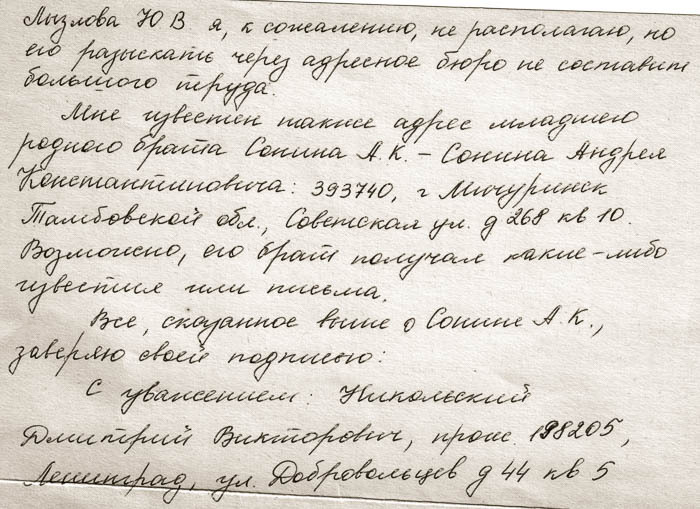 Лызлова Ю В я, к сожалению, не располагаю, но
его разыскать через адресное бюро не составит
большого труда.
Мне известен также адрес младшего
родного брата Сонина А.К. – Сонина Андрея
Константиновича: 393740, г Мичуринск
Тамбовской обл., Советская ул. д 268 кв 10.
Возможно, его брат получал какие-либо
известия или письма.
Все, сказанное выше о Сонине А.К.,
заверяю своей подписью:
С уважением: Никольский
Дмитрий Викторович, прож. 198205,
Ленинград, ул. Добровольцев д 44 кв 5